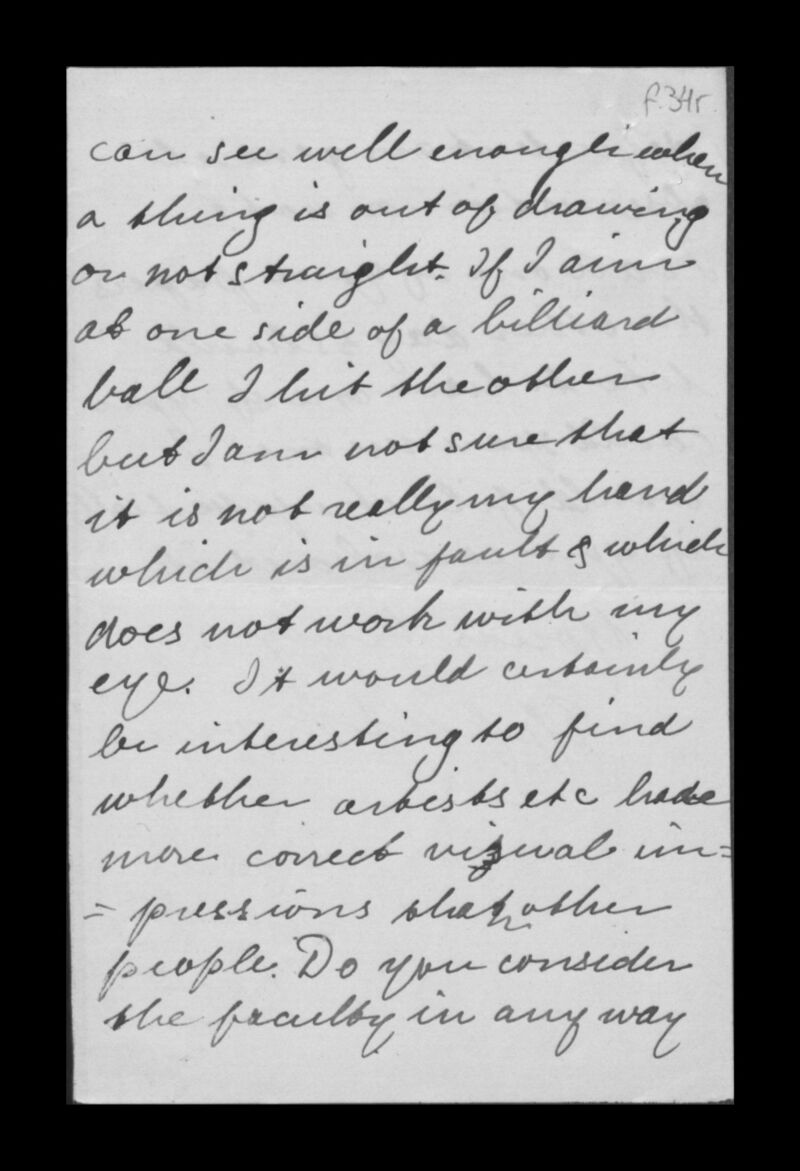 f.34r
can see well enough when
a thing is out of drawing
or not straight. If I aim
at one side of a billiard
ball I hit the other
but I am not sure that
it is not really my hand
which is in fault & which
does not work with my
eye. It would certainly
be interesting to find
whether artists etc have
more correct visual im=
=pressions than other
people. Do you consider
the faculty in any way